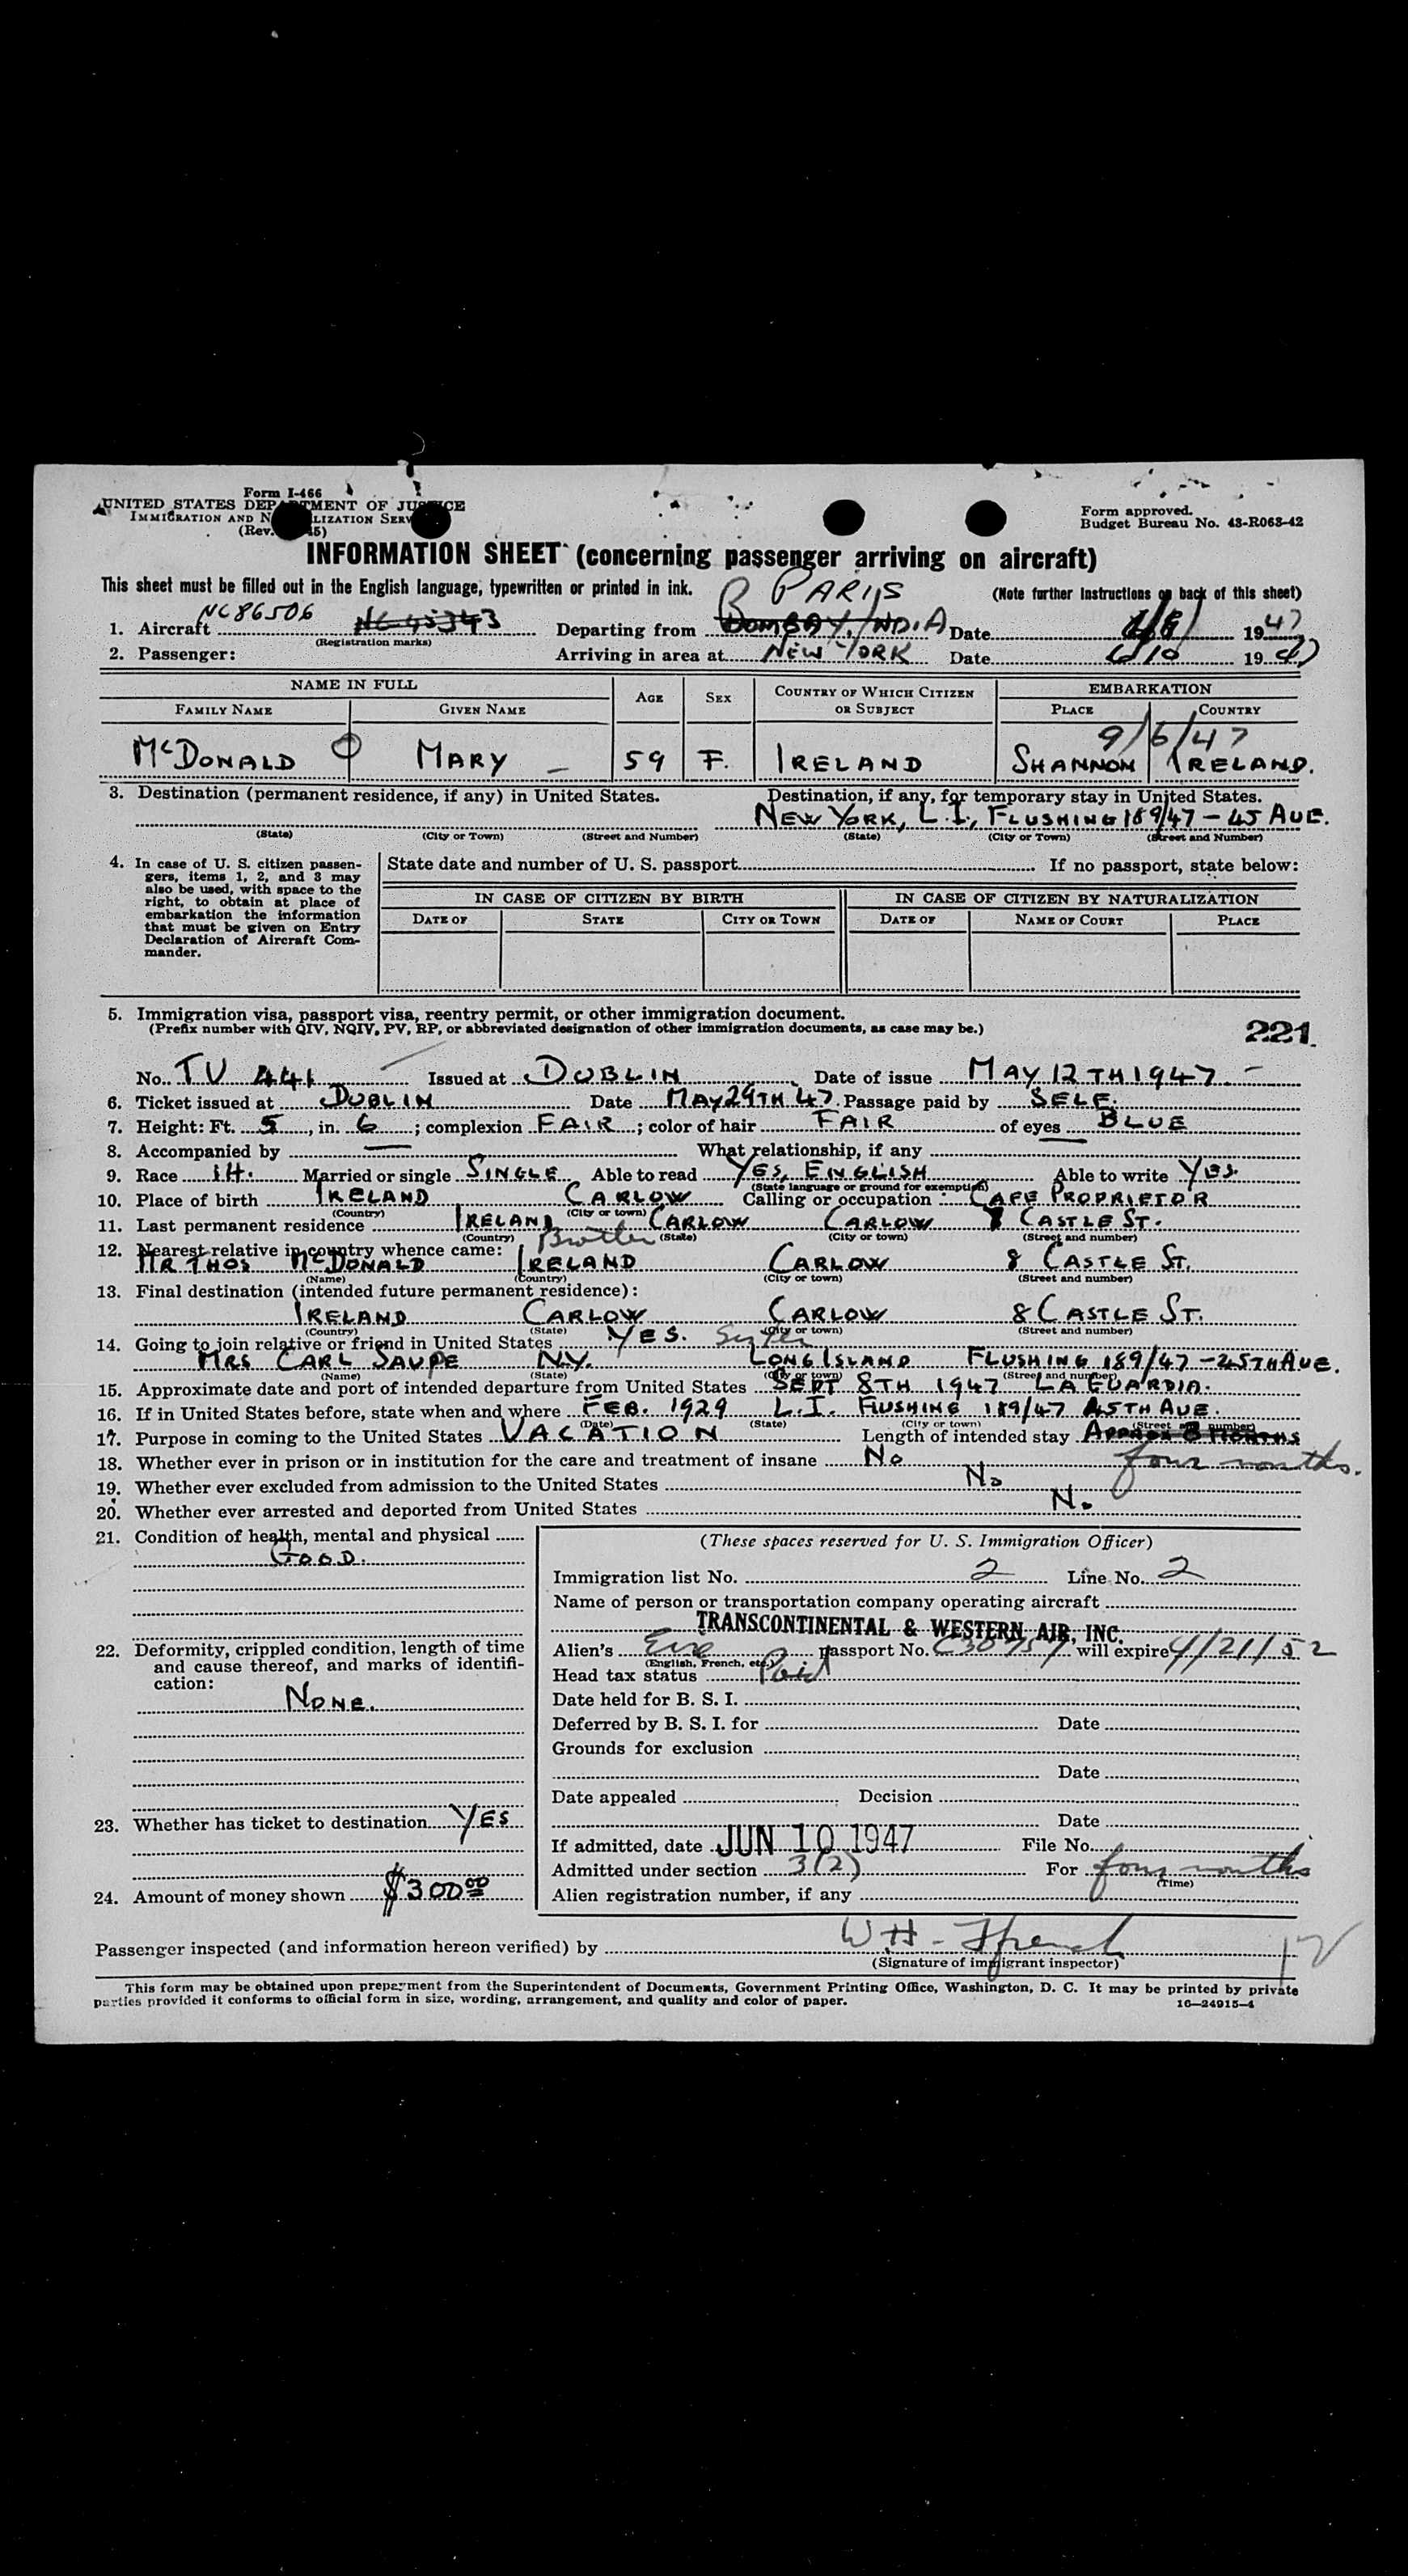 Form I-466
UNITED STATES DEPARTMENT OF JUSTICE
IMMIGRATION AND NATURALIZATION SERVICE
(Rev. 45)
Form approved.
Budget Bureau No. 43-R063-42
INFORMATION SHEET (concerning passenger arriving on aircraft)
This sheet must be filled out in the English language, typewritten or printed in ink. (Note further instructions on back of this sheet)
PARIS
NC86506
1. Aircraft NC 45343 Departing from BOMBAY, INDIA Date 1947
(Registration marks)
2. Passenger: Arriving in area at NEW YORK Date 6/10 1947
NAME IN FULL AGE SEX COUNTRY OF WHICH CITIZEN OR SUBJECT EMBARKATION
FAMILY NAME GIVEN NAME PLACE COUNTRY
9/6/47
McDONALD MARY 59 F. IRELAND SHANNON IRELAND.
3. Destination (permanent residence, if any) in United States. Destination, if any, for temporary stay in United States.
NEW YORK, L.I., FLUSHING 189/47 - 45 AVE.
(State) (City or Town) (Street and Number) (State) (City or Town) (Street and Number)
4. In case of U. S. citizen passengers, items 1, 2, and 3 may also be used, with space to the right, to obtain at place of embarkation the information that must be given on Entry Declaration of Aircraft Commander.
State date and number of U. S. passport If no passport, state below:
IN CASE OF CITIZEN BY BIRTH IN CASE OF CITIZEN BY NATURALIZATION
DATE OF STATE CITY OR TOWN DATE OF NAME OF COURT PLACE
5. Immigration visa, passport visa, reentry permit, or other immigration document.
(Prefix number with QIV, NQIV, PV, RP, or abbreviated designation of other immigration documents, as case may be.)
221
No. TV 441 Issued at DUBLIN Date of issue MAY 12TH 1947
6. Ticket issued at DUBLIN Date MAY 29TH 47 Passage paid by SELF.
7. Height: Ft. 5, in. 6; complexion FAIR; color of hair FAIR of eyes BLUE
8. Accompanied by — What relationship, if any
9. Race IH. Married or single SINGLE Able to read YES, ENGLISH Able to write YES.
(State language or ground for exemption)
10. Place of birth IRELAND CARLOW Calling or occupation CAFE PROPRIETOR
(Country) (City or town)
11. Last permanent residence IRELAND CARLOW CARLOW 8 CASTLE ST.
(Country) (State) (City or town) (Street and number)
12. Nearest relative in country whence came: Brother
MR THOS McDONALD IRELAND CARLOW 8 CASTLE ST.
(Name) (Country) (City or town) (Street and number)
13. Final destination (intended future permanent residence):
IRELAND CARLOW CARLOW 8 CASTLE ST.
(Country) (State) (City or town) (Street and number)
14. Going to join relative or friend in United States YES. Sister
MRS CARL SAUPE N.Y. LONG ISLAND FLUSHING 189/47 - 45TH AVE.
(Name) (State) (City or town) (Street and number)
15. Approximate date and port of intended departure from United States SEPT 8TH 1947 LA GUARDIA.
16. If in United States before, state when and where FEB. 1929 L.I. FLUSHING 189/47 45TH AVE.
(Date) (State) (City or town) (Street and number)
17. Purpose in coming to the United States VACATION Length of intended stay APPROX 3 MONTHS
four months.
18. Whether ever in prison or in institution for the care and treatment of insane NO
19. Whether ever excluded from admission to the United States NO
20. Whether ever arrested and deported from United States NO
21. Condition of health, mental and physical
GOOD.
22. Deformity, crippled condition, length of time and cause thereof, and marks of identification:
NONE.
23. Whether has ticket to destination YES
24. Amount of money shown $300.00
(These spaces reserved for U. S. Immigration Officer)
Immigration list No. 2 Line No. 2
Name of person or transportation company operating aircraft
TRANSCONTINENTAL & WESTERN AIR, INC.
Alien's Eire passport No. will expire 4/21/52
(English, French, etc.)
Head tax status Paid
Date held for B. S. I.
Deferred by B. S. I. for Date
Grounds for exclusion
Date
Date appealed Decision
Date
If admitted, date JUN 10 1947 File No.
Admitted under section 3(2) For four months
(Time)
Alien registration number, if any
Passenger inspected (and information hereon verified) by W H
(Signature of immigrant inspector)
This form may be obtained upon prepayment from the Superintendent of Documents, Government Printing Office, Washington, D. C. It may be printed by private
parties provided it conforms to official form in size, wording, arrangement, and quality and color of paper.
16—24915-4